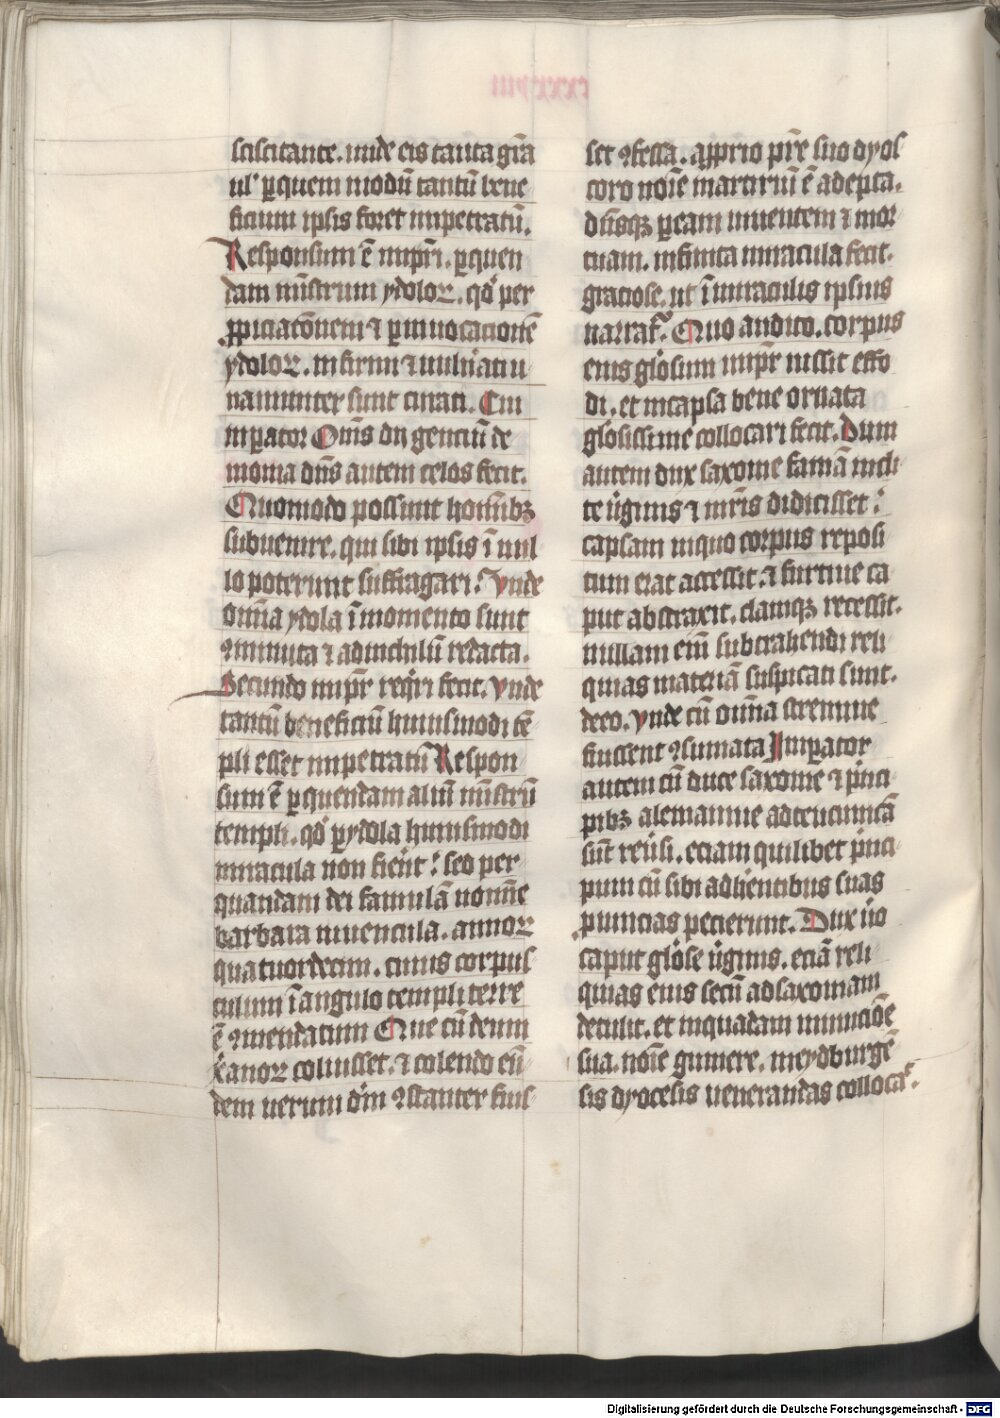 sciscitante. unde eis tanta gr̄a
ul' ꝑquem modū tantū bene
ficium ipsis foret impetratū.
Responsum ē imp̄ri. ꝑquen
dam mīstrum ydoloꝝ. qd' per
ꝓpiciatōnem ⁊ ꝑinuocacionē
ydoloꝝ. infirmi ⁊ uulnati u
namuniter sunt curati. Cui
imꝑator Om̄s dij genciū de
monia dn̄s autem celos fecit.
Quomodo possunt homībꝫ
subuenire. qui sibi ipsis ī nul
lo poterunt suffragari? Vnde
om̄ia ydola ī momento sunt
ꝯminuta ⁊ adnichilū redacta.
Secundo imp̄r req̇ri fecit. Vnde
tantū beneficiū huiusmodi tē
pli esset impetratū Respon
sum ē ꝑquendam aliū mīstrū
templi. qd' ꝑydola huiusmodi
miracula non fierēt: sed per
quandam dei famulā nomīe
barbara iuuencula. annoꝝ
quatuordecim. cuius corpus
culum ī angulo templi terre
ē ꝯmendatum Que cū deum
xp̄anoꝝ coluisset. ⁊ colendo eū
dem uerum dm̄ ꝯstanter fuis
set ꝯfessa. aꝓprio pr̄e suo dyos
coro noīe martirīū ē adepta.
dn̄sqꝫ ꝑeam uiuentem ⁊ mor
tuam. infinita miracula fecit.
graciose. ut ī miraculis ipsius
narrat᷑. Quo audito. corpus
eius gl'osum imp̄r iussit effo
di. et incapsa bene ornata
gl'osissime collocari fecit. Dum
autem dux saxonie famā incli
te u̇ginis ⁊ mr̄is didicisset:
capsam inquo corpus reposi
tum erat accessit. ⁊ furtiue ca
put abstraxit. clamqꝫ recessit.
nullam eiū subtrahendi reli
quias materiā suspicati sunt.
deco. Vnde cū om̄ia strennue
fuissent ꝯsumata Imꝑator
autem cū duce saxonie ⁊ p̍nci
pibꝫ alemannie adteutunicā
sūt reu̇si. eciam quilibet p̍nci
pum cū sibi adhe̍ntibus suas
ꝓuincias pecierunt. Dux u̍o
caput gl'ose u̇ginis. eciā reli
quias eius secū adsaxoniam
detulit. et inquadam municiōe
sua. noīe gumere. meydburgē
sis dyocesis uenerandas collocat᷑.
Digitalisierung gefördert durch die Deutsche Forschungsgemeinschaft - DFG